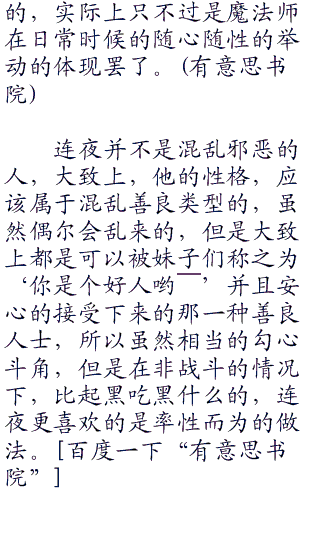 的，实际上只不过是魔法师
在日常时候的随心随性的举
动的体现罢了。(有意思书
院)
连夜并不是混乱邪恶的
人，大致上，他的性格，应
该属于混乱善良类型的，虽
然偶尔会乱来的，但是大致
上都是可以被妹子们称之为
‘你是个好人哟￣’并且安
心的接受下来的那一种善良
人士，所以虽然相当的勾心
斗角，但是在非战斗的情况
下，比起黑吃黑什么的，连
夜更喜欢的是率性而为的做
法。[百度一下“有意思书
院”]